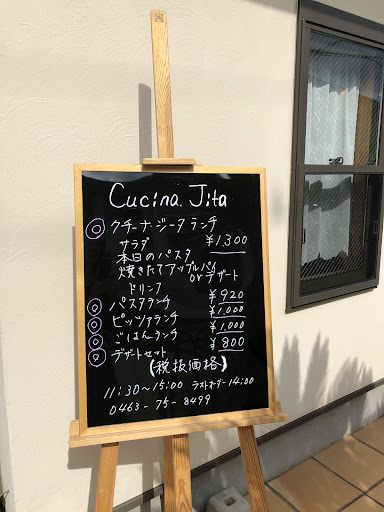 Cucina Jita
◎ クチーナ・ジータ ランチ
サラダ ¥1,300
本日のパスタ
焼きたてアップルパイ
orデザート
ドリンク
◎ パスタランチ ¥920
◎ ピッツァランチ ¥1,000
◎ ごはんランチ ¥1,000
◎ デザートセット ¥800
(税抜価格)
11:30〜15:00 ラストオーダー14:00
0463-75-8499